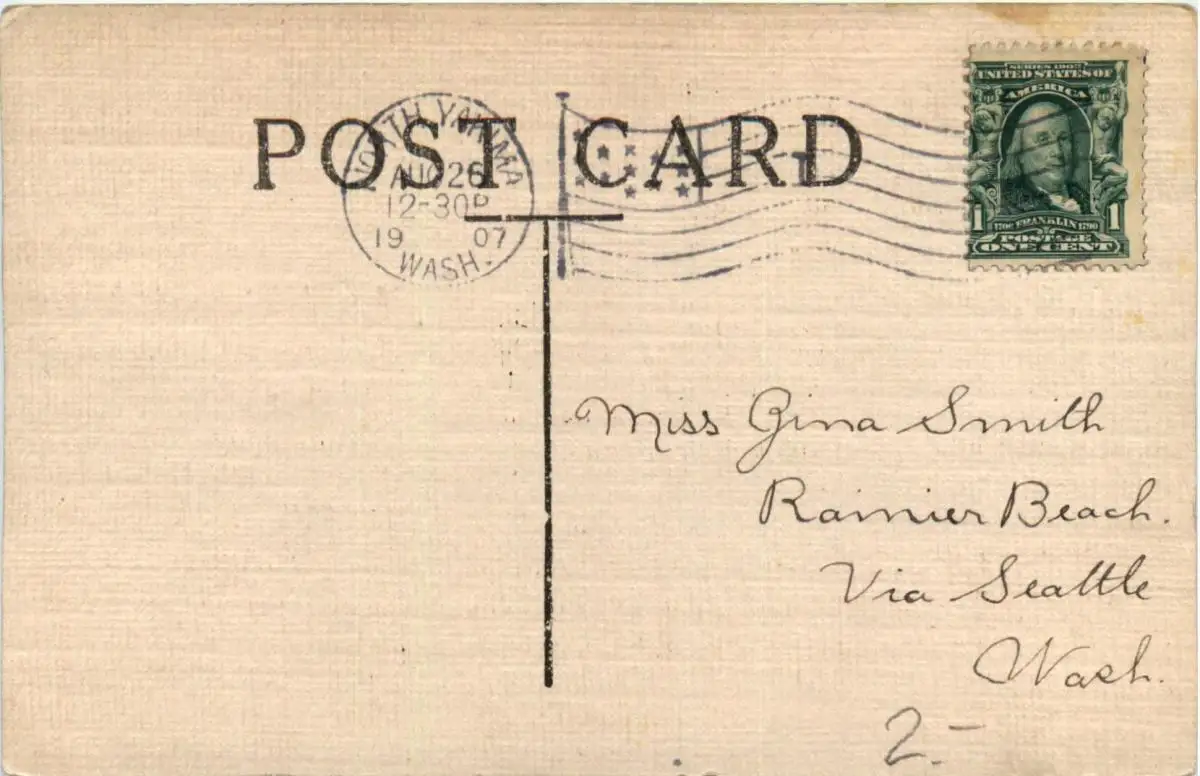 POST CARD
NORTH YAKIMA
AUG 26
12-30P
19 07
WASH.
SERIES 1902
UNITED STATES OF
AMERICA
1 1706 FRANKLIN 1790 1
POSTAGE
ONE CENT
Miss Gina Smith
Rainier Beach.
Via Seattle
Wash.
2.-